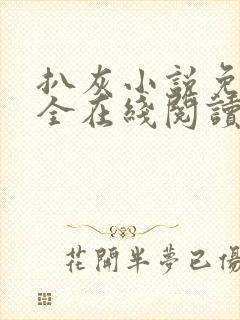 扒灰小説免
全在綫閱讀
花開半夢已傷